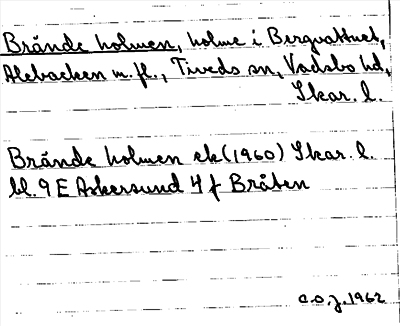 Brände holmen, holme i Bergvattnet,
Alebacken m.fl., Tiveds sn, Vadsbo hd,
Skar. l.
Brände holmen ek (1960) Skar. l.
bl. 9 E Askersund 4 f Bråten
C.O.J. 1962